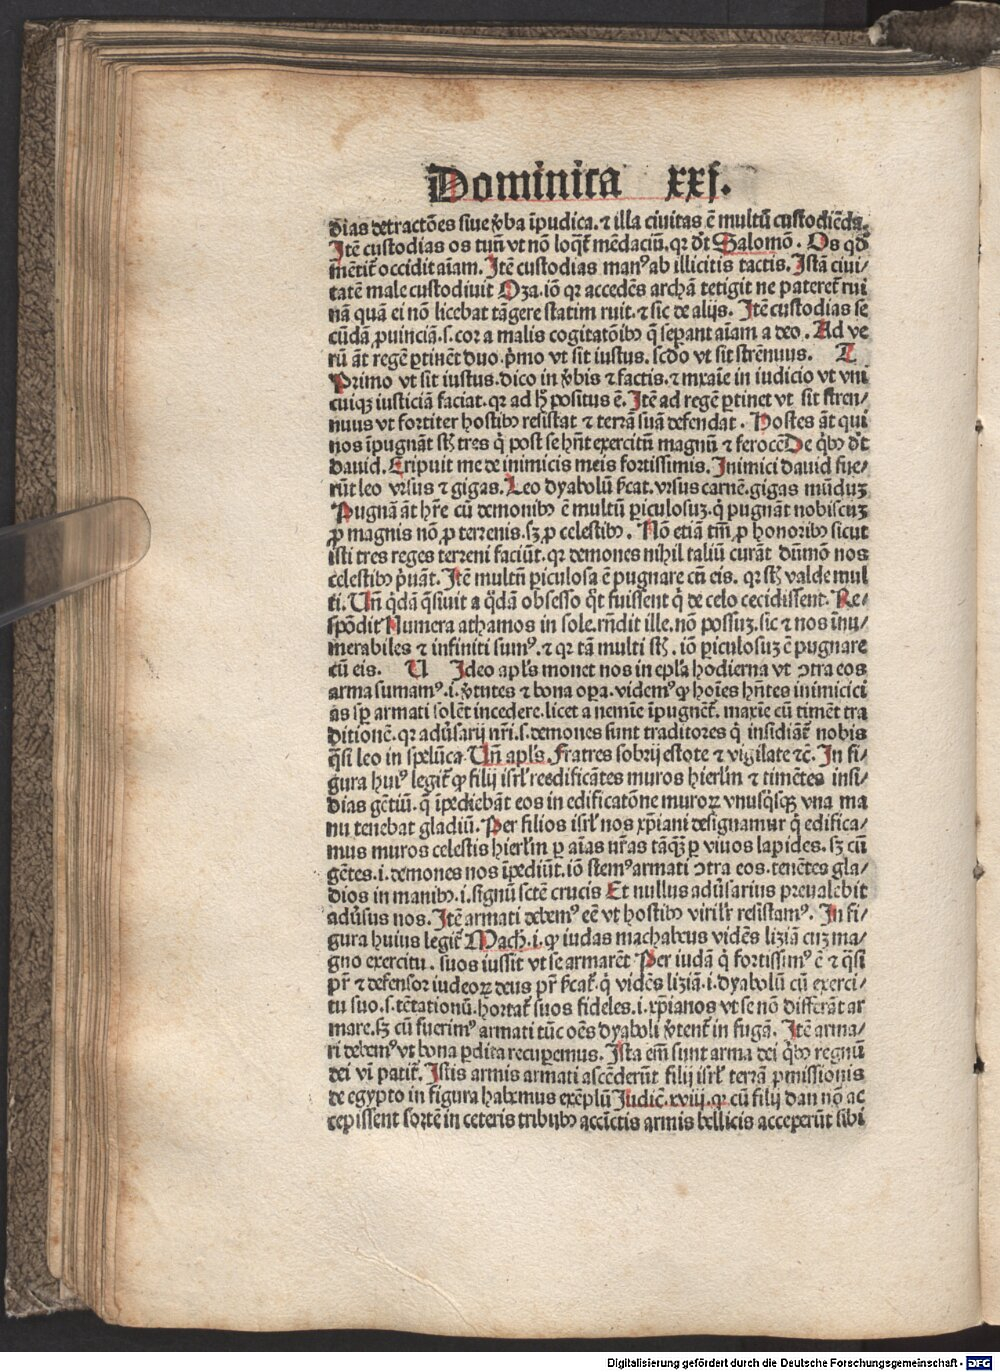 Dominica xxj.
dias detractões siue v̓ba īpudica. ⁊ illa ciuitas ē multū custodiēda.
Itē custodias os tuū vt nō loq̄t̄ mēdaciū. qꝛ dr̄t Salomō. Os qd̓
mētit̄ occidit aīam. Itē custodias manꝰ ab illicitis tactis. Istā ciui⸗
tatē male custodiuit Oza. iō qꝛ accedēs archā tetigit ne pateret̄ rui
nā quā ei nō licebat tāgere statim ruit. ⁊ sic de alijs. Itē custodias se
cūdā ꝓuinciā. s. cor a malis cogitatōibꝰ q̄ sepant aīam a deo. Ad ve
rū āt regē ꝑtinēt duo. p̓mo vt sit iustus. scďo vt sit strēnuus. T
Primo vt sit iustus. dico in v̓bis ⁊ factis. ⁊ mxaīe in iudicio vt vni
cuiqꝫ iusticiā faciat. qꝛ ad hꝭ positus ē. Itē ad regē ꝑtinet vt sit stren⸗
nuus vt fortiter hostibꝰ resistat ⁊ terrā suā defendat. Hostes āt qui
nos īpugnāt sꝭ tres q̇ post se hn̄t exercitū magnū ⁊ ferocē De q̇bꝰ dr̄t
dauid. Eripuit me de inimicis meis fortissimis. Inimici dauid fue⸗
rūt leo vrsus ⁊ gigas. Leo dyabolū s̓cat. vrsus carnē. gigas mūduꝫ
Pugnā āt hr̄e cū demonibꝰ ē multū ꝑiculosuꝫ. q̇ pugnāt nobiscuꝫ
ꝓ magnis nō ꝓ terrenis. sꝫ ꝓ celestibꝰ. Nō etiā tm̄ ꝓ honoribꝰ sicut
isti tres reges terreni faciūt. qꝛ demones nihil taliū curāt dūmō nos
celestibꝰ p̓uāt. Itē multū ꝑiculosa ē pugnare cū eis. qꝛ sꝭ valde mul
ti. Vn̄ q̇dā q̄siuit a q̇dā obsesso q̇t fuissent q̇ de celo cecidissent. Re⸗
spōdit Numera athamos in sole. rn̄dit ille. nō possuꝫ. sic ⁊ nos īnu⸗
merabiles ⁊ infiniti sumꝰ. ⁊ qꝛ tā multi sꝭ. iō ꝑiculosuꝫ ē pugnare
cū eis. U Ideo apl̓s monet nos in epl̓a hodierna vt ꝯtra eos
arma sumamꝰ. i. v̓tutes ⁊ bona oꝑa. videmꝰ ꝙ hoīes hn̄tes inimici
as sꝑ armati solēt incedere. licet a nemīe īpugnēt̄. maxīe cū timēt tra
ditionē. qꝛ adu̓sarij nr̄i. s. demones sunt traditores q̇ insidiāt̄ nobis
q̄si leo in spelūca. Vn̄ apl̓s. Fratres sobrij estote ⁊ vigilate ⁊c̄. In fi⸗
gura huiꝰ legit̄ ꝙ filij isrl̓ reedificātes muros hierl̓m ⁊ timētes insi⸗
dias gētiū. q̄ īpediebāt eos in edificatōne muroꝝ vnusq̇sqꝫ vna ma
nu tenebat gladiū. Per filios isrl̓ nos xp̄iani designamur q̇ edifica⸗
mus muros celestis hierl̓m ꝑ aīas nr̄as tāqꝫ ꝑ viuos lapides. sꝫ cū
gētes. i. demones nos īpediūt. iō stemꝰ armati ꝯtra eos. tenētes gla⸗
dios in manibꝰ. i. signū sctē crucis Et nullus adu̓sarius preualebit
adu̓sus nos. Itē armati debemꝰ eē vt hostibꝰ virilr̄ resistamꝰ. In fi⸗
gura huius legit̄ Macħ. i. ꝙ iudas machabeus vidēs liziā cuꝫ ma⸗
gno exercitu. suos iussit vt se armarēt Per iudā q̇ fortissimꝰ ē ⁊ q̄si
pr̄ ⁊ defensor iudeoꝝ deus pr̄ s̓cat̄. q̇ vidēs liziā. i. dyabolū cū exerci⸗
tu suo. s. tētationū. hortat̄ suos fideles. i. xp̄ianos vt se nō differāt ar
mare. sꝫ cū fuerimꝰ armati tūc oēs dyaboli v̓tent̄ in fugā. Itē arma⸗
ri debemꝰ vt bona ꝑdita recuꝑemus. Ista em̄ sunt arma dei q̇bꝰ regnū
dei vī patit̄. Istis armis armati ascēderūt filij isrl̓ terrā ꝓmissionis
de egypto in figura habemus exēplū Iudic̄. xviij. qꝛ cū filij dan nō ac
cepissent sortē in ceteris tribubꝰ accīctis armis bellicis acceperūt sibi
Digitalisierung gefördert durch die Deutsche Forschungsgemeinschaft - DFG